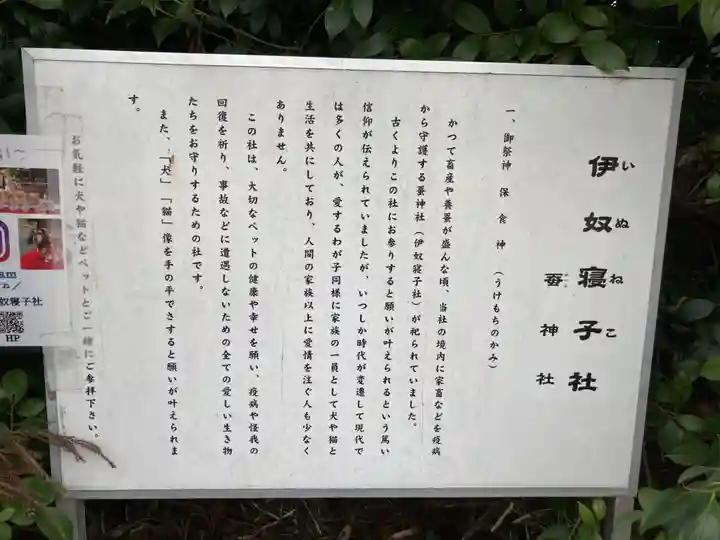 伊奴寝子社
いぬねこ
蚕神社
一、御祭神 保食神 (うけもちのかみ)
かつて畜産や養蚕が盛んな頃、当社の境内に家畜などを疫病
から守護する蚕神社(伊奴寝子社)が祀られていました。
古くよりこの社にお参りすると願いが叶えられるという篤い
信仰が伝えられていましたが、いつしか時代が変遷して現代で
は多くの人が、愛するわが子同様に家族の一員として犬や猫と
生活を共にしており、人間の家族以上に愛情を注ぐ人も少なく
ありません。
この社は、大切なペットの健康や幸せを願い、疫病や怪我の
回復を祈り、事故などに遭遇しないための全ての愛しい生き物
たちをお守りするための社です。
また、「犬」「猫」像を手の平でさすると願いが叶えられま
す。
お気軽に犬や猫などペットとご一緒にご参拝下さい。
奴寝子社
HP